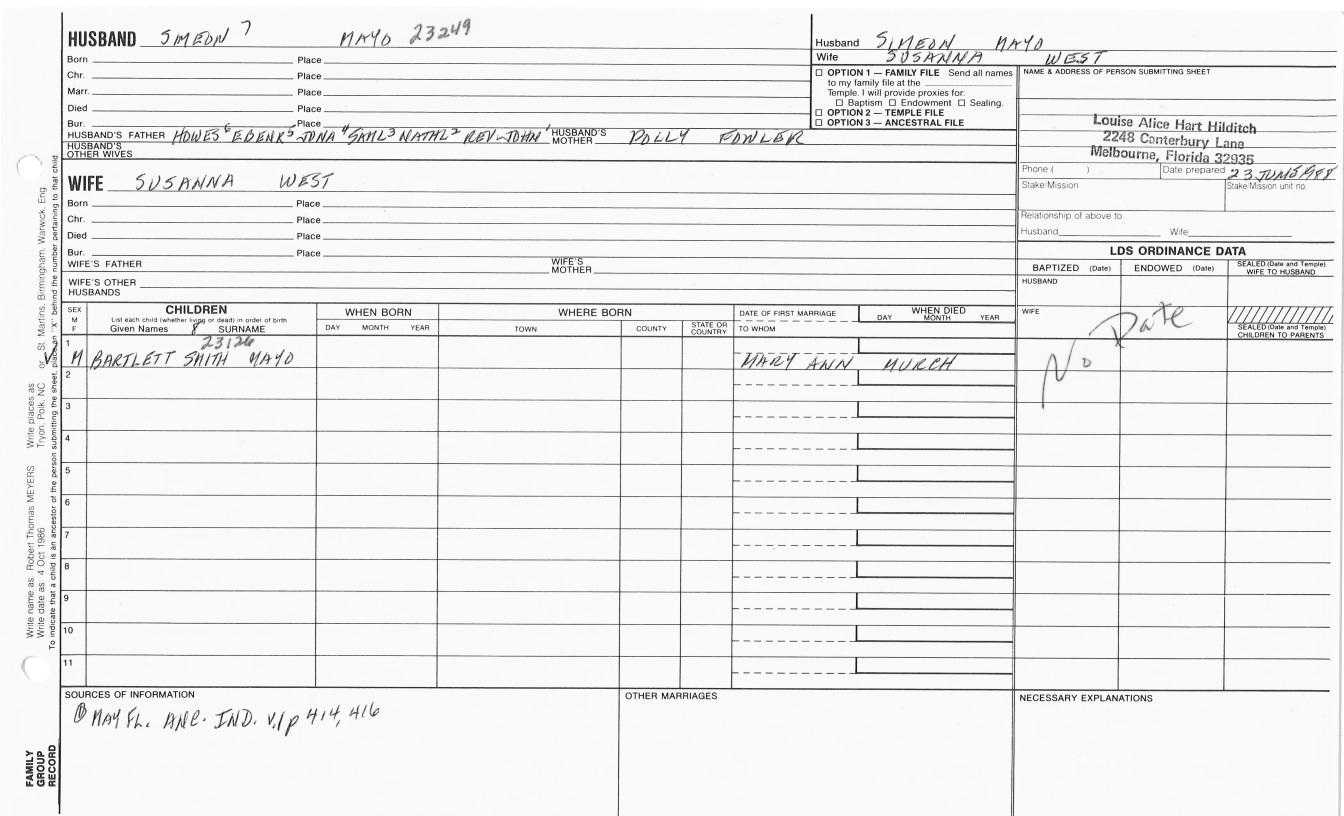 HUSBAND SIMEON 7 MAYO 23249
Born Place
Chr. Place
Marr. Place
Died Place
Bur. Place
HUSBAND'S FATHER HOWES 6 EBENR 5 JONA 4 SAML 3 NATHL 2 REV-JOHN 1 HUSBAND'S MOTHER POLLY FOWLER
HUSBAND'S OTHER WIVES
WIFE SUSANNA WEST
Born Place
Chr. Place
Died Place
Bur. Place
WIFE'S FATHER WIFE'S MOTHER
WIFE'S OTHER HUSBANDS
Husband SIMEON MAYO
Wife SUSANNA WEST
☐ OPTION 1 — FAMILY FILE Send all names
to my family file at the
Temple. I will provide proxies for:
☐ Baptism ☐ Endowment ☐ Sealing.
☐ OPTION 2 — TEMPLE FILE
☐ OPTION 3 — ANCESTRAL FILE
NAME & ADDRESS OF PERSON SUBMITTING SHEET
Louise Alice Hart Hilditch
2248 Canterbury Lane
Melbourne, Florida 32935
Phone ( ) Date prepared 23 JUN 1988
Stake/Mission Stake/Mission unit no.
Relationship of above to
Husband Wife
LDS ORDINANCE DATA
BAPTIZED (Date) ENDOWED (Date) SEALED (Date and Temple) WIFE TO HUSBAND
HUSBAND
WIFE
SEALED (Date and Temple) CHILDREN TO PARENTS
No Date
SEX M F
CHILDREN
List each child (whether living or dead) in order of birth
Given Names 8 SURNAME
WHEN BORN
DAY MONTH YEAR
WHERE BORN
TOWN COUNTY STATE OR COUNTRY
DATE OF FIRST MARRIAGE
TO WHOM
WHEN DIED
DAY MONTH YEAR
23126
1 M BARTLETT SMITH MAYO MARY ANN MURCH
2
3
4
5
6
7
8
9
10
11
SOURCES OF INFORMATION
① MAY FL. ANC. IND. V.1 p 414, 416
OTHER MARRIAGES
NECESSARY EXPLANATIONS
Write name as: Robert Thomas MEYERS Write places as: Tryon, Polk, NC or St. Martins, Birmingham, Warwick, Eng.
Write date as: 4 Oct 1986
To indicate that a child is an ancestor of the person submitting the sheet, place an "X" behind the number pertaining to that child
FAMILY
GROUP
RECORD